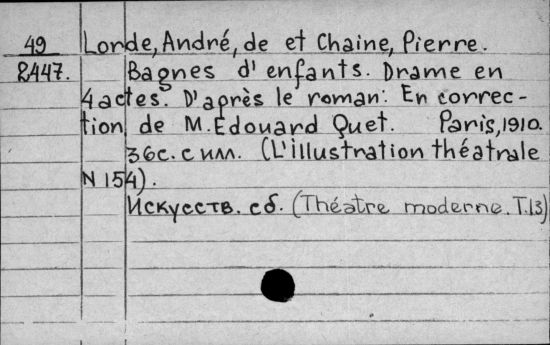 49 Lorde, André, de et Chaine, Pierre.
2447. Bagnes d'enfants. Drame en
4 actes. D'après le roman: En correc-
tion de M. Edouard Quet. Paris, 1910.
36с. с илл. (L'illustration théatrale
N 154).
Искусств. сб. (Théatre moderne. T.13)